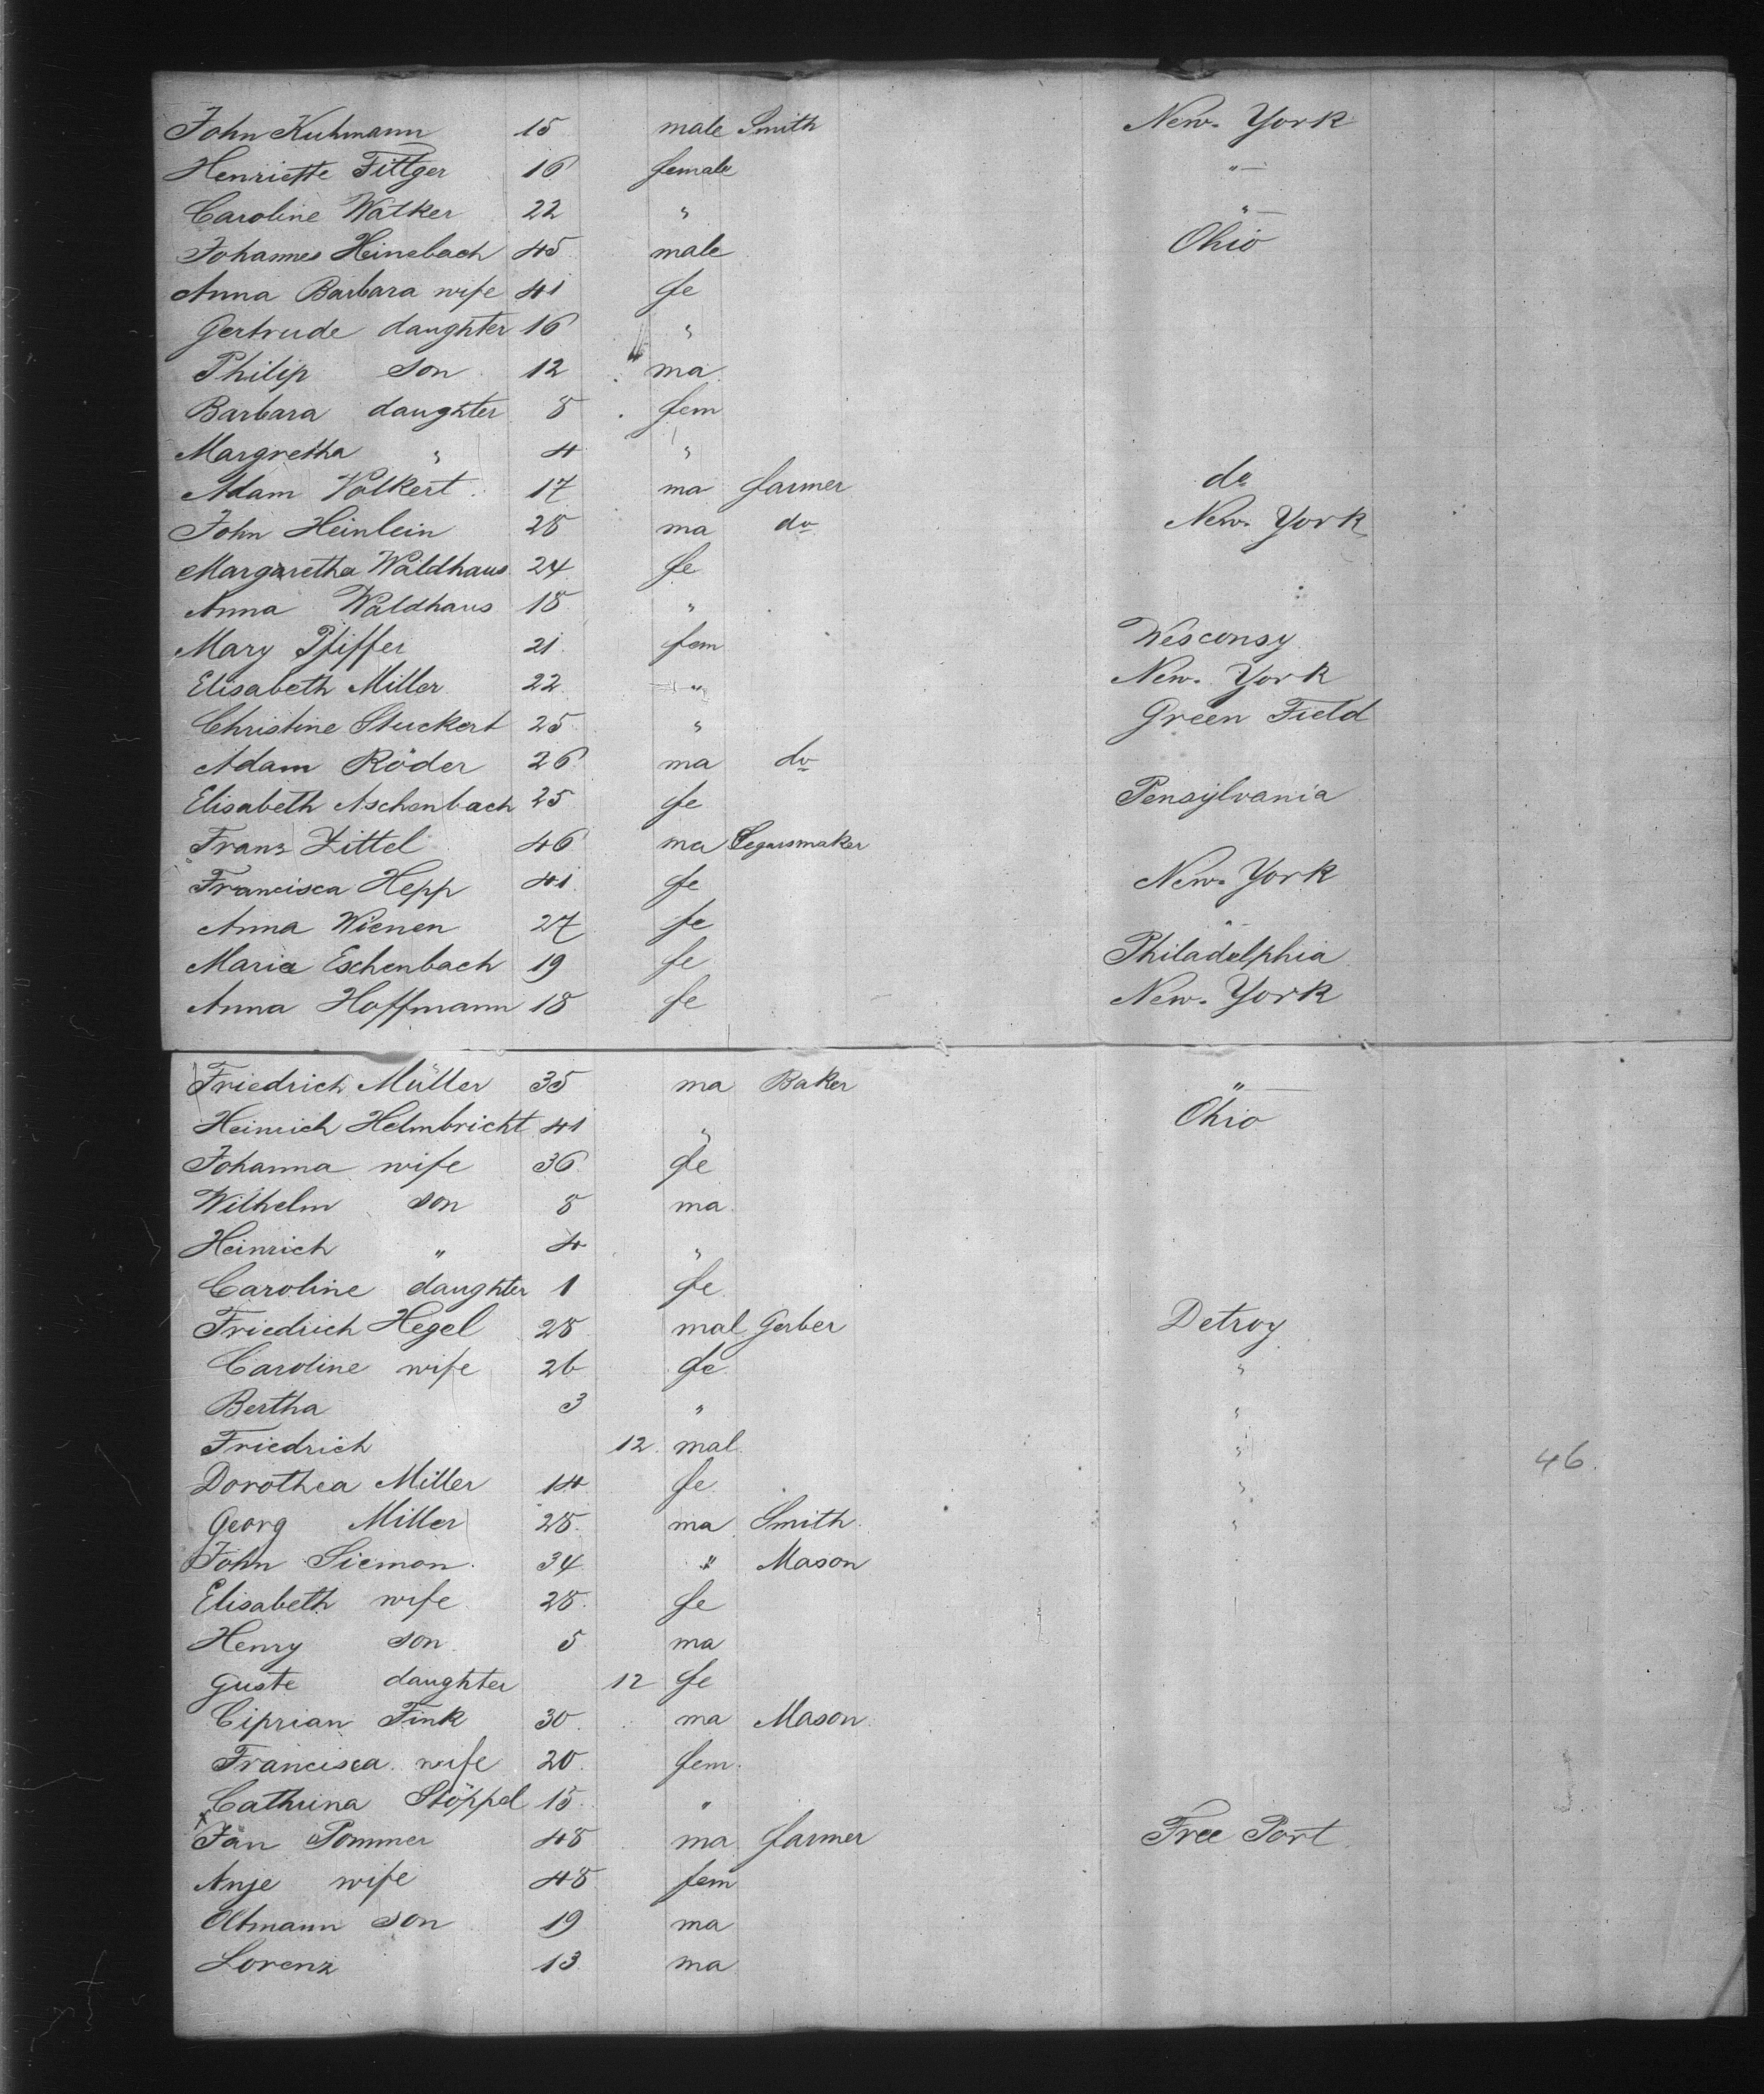 John Kuhmann 15 male Smith New-York
Henriette Fittger 16 female "
Caroline Walker 22 " "
Johannes Heinebach 45 male Ohio
Anna Barbara wife 41 fe
Gertrude daughter 16 "
Philip son 12 ma
Barbara daughter 8 fem
Margretha " 4 "
Adam Volkert 17 ma farmer do
John Heinlein 28 ma do New-York
Margaretha Waldhaus 24 fe
Anna Waldhaus 18 "
Mary Pfiffer 21 fem Wesconsy
Elisabeth Miller 22 " New-York
Christine Stuckert 25 " Green Field
Adam Röder 26 ma do
Elisabeth Aschenbach 25 fe Pensylvania
Franz Zittel 46 ma Segarsmaker
Francisca Hepp 41 fe New-York
Anna Wienen 27 fe "
Maria Eschenbach 19 fe Philadelphia
Anna Hoffmann 18 fe New-York
Friedrich Müller 35 ma Baker "
Heinrich Helmbricht 41 " Ohio
Johanna wife 36 fe
Wilhelm son 8 ma
Heinrich " 4 "
Caroline daughter 1 fe
Friedrich Hegel 28 mal Gerber Detroy
Caroline wife 26 fe "
Bertha 3 " "
Friedrich 12 mal "
46.
Dorothea Miller 14 fe "
Georg Miller 28 ma Smith "
John Siemon 34 " Mason
Elisabeth wife 28 fe
Henry son 5 ma
Guste daughter 12 fe
Ciprian Fink 30 ma Mason
Francisca wife 20 fem
Cathrina Stöppel 15 "
x Jan Pommer 48 ma farmer Free Port
Anje wife 48 fem
Oltmann son 19 ma
Lorenz 13 ma